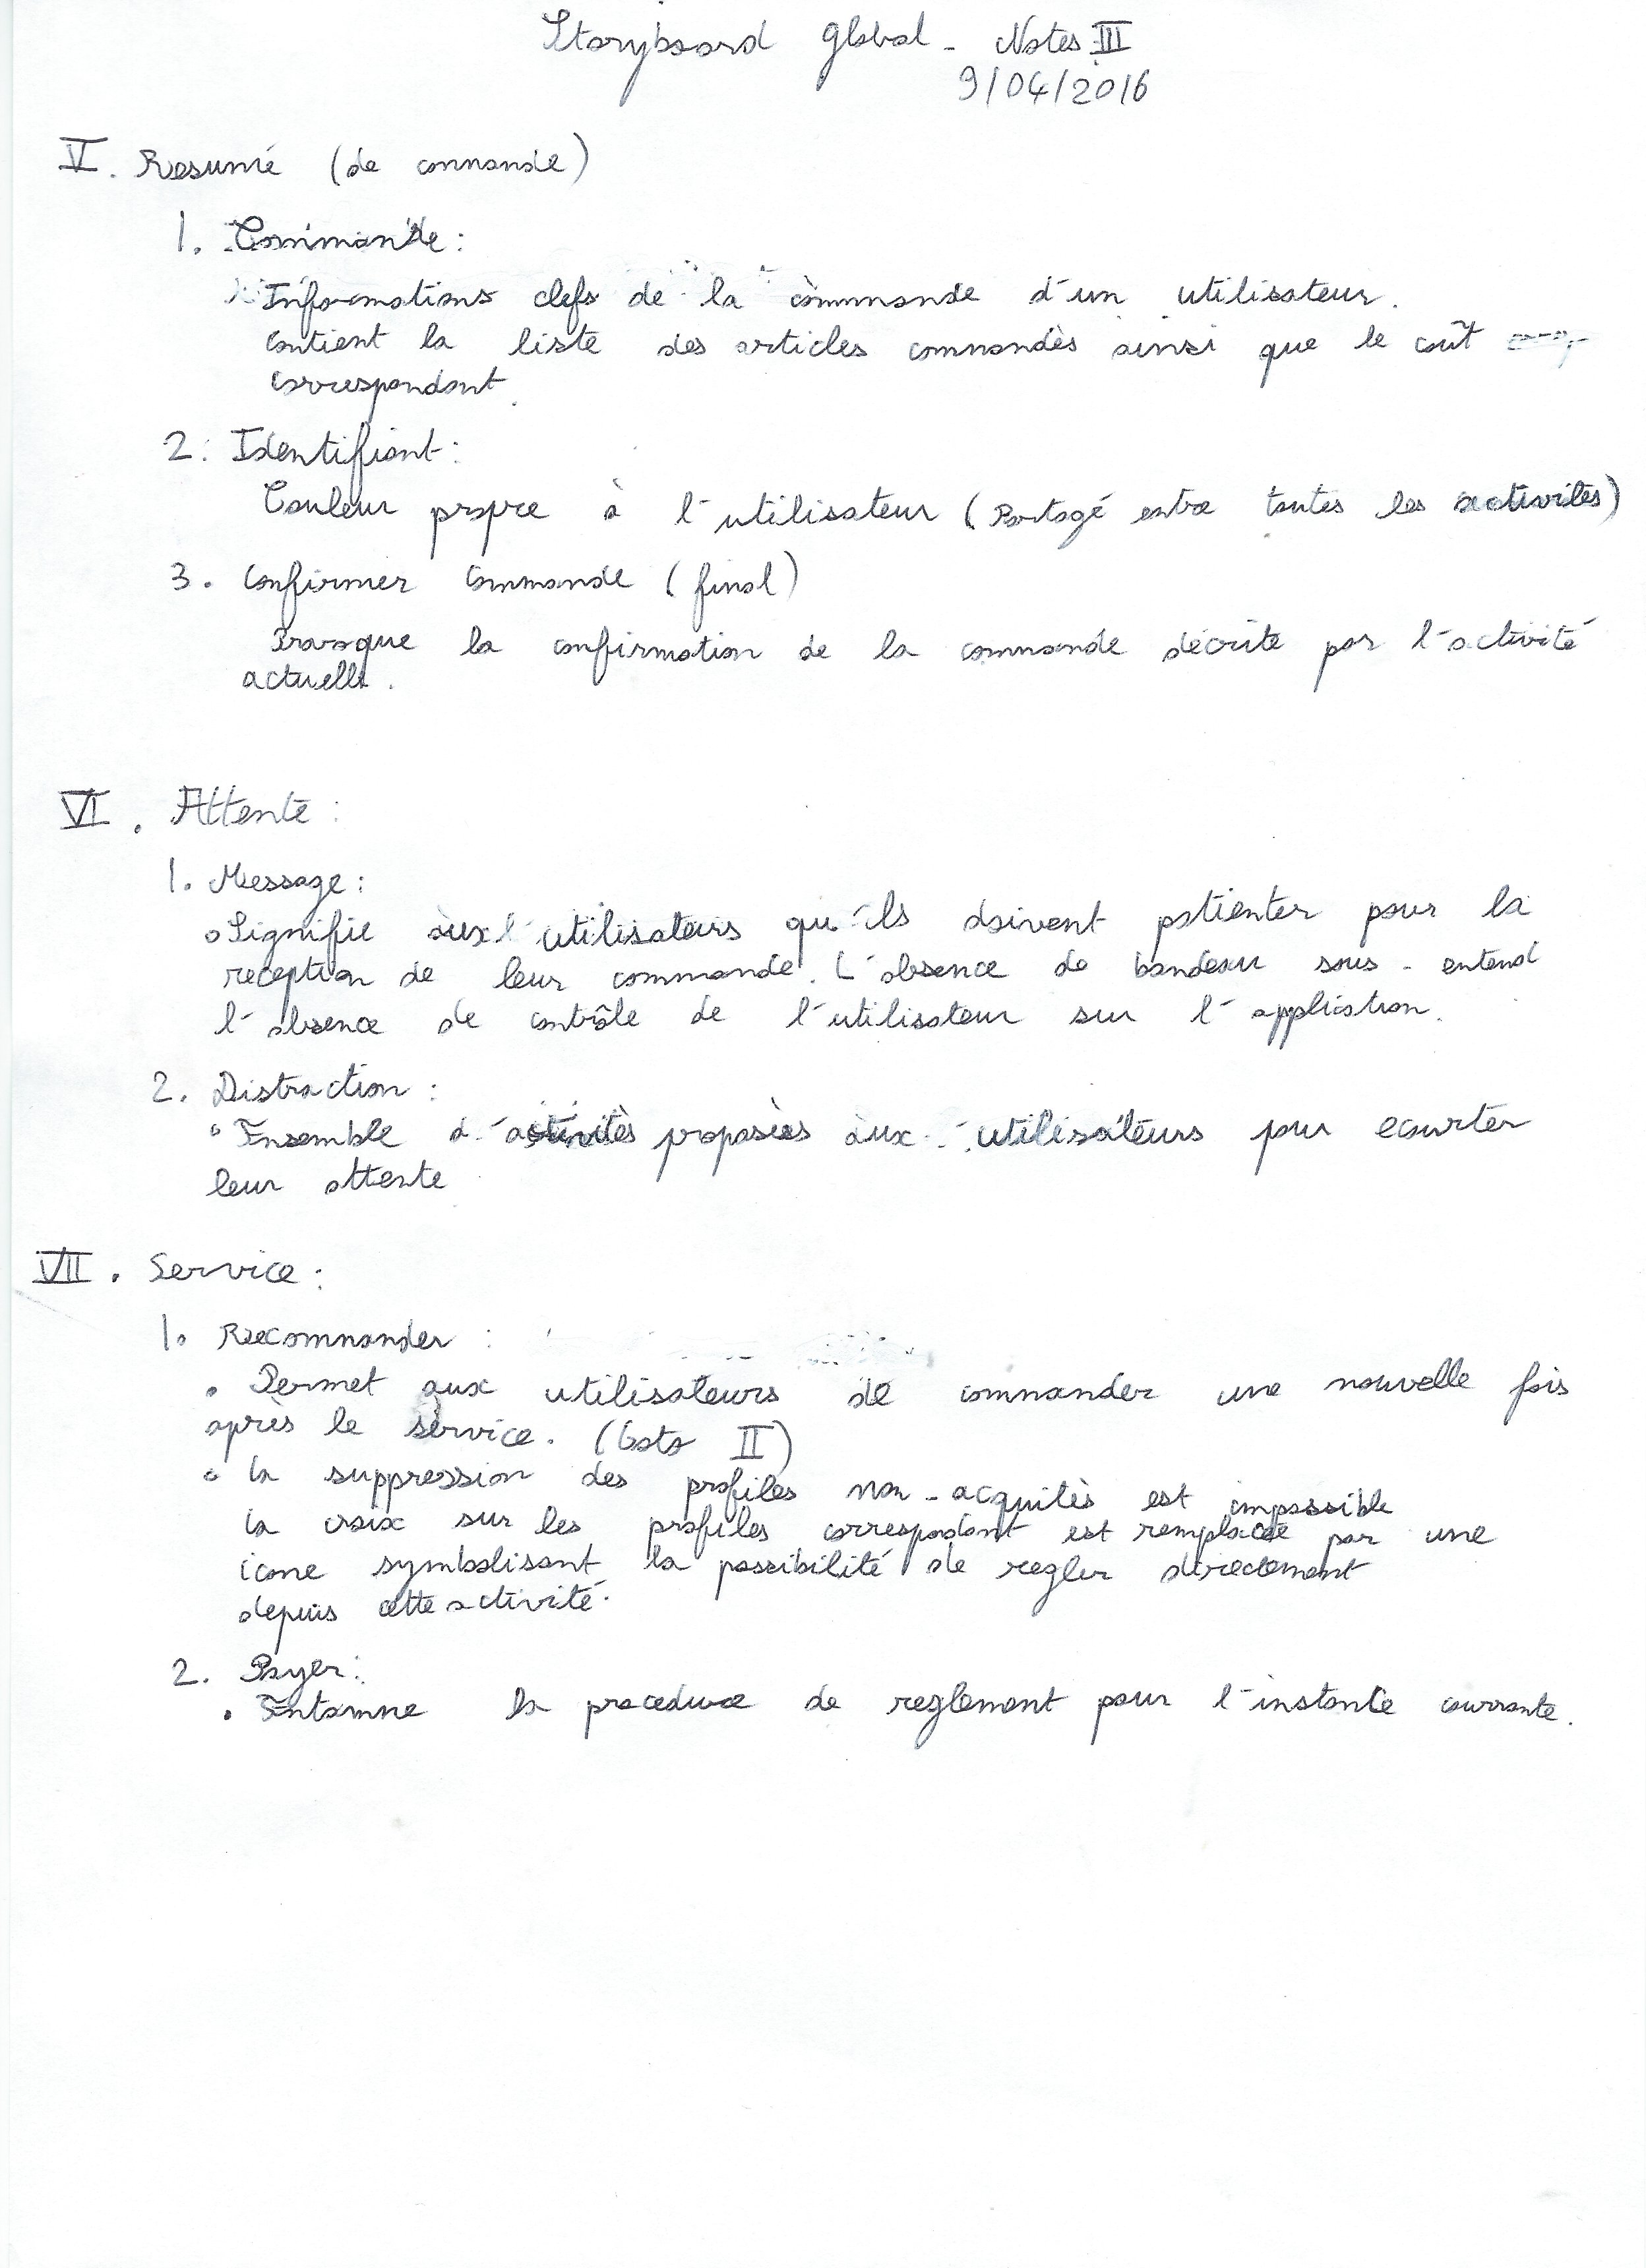 Storyboard global - Notes III
9/04/2016
V. Resumé (de commande)
1. Commande :
Informations clefs de la commande d'un utilisateur.
Contient la liste des articles commandés ainsi que le coût
correspondant.
2. Identifiant :
Couleur propre à l'utilisateur (Partagé entre toutes les activités)
3. Confirmer Commande (final)
Provoque la confirmation de la commande décrite par l'activité
actuelle.
VI. Attente :
1. Message :
o Signifie aux utilisateurs qu'ils doivent patienter pour la
reception de leur commande. L'absence de bandeau sous-entend
l'absence de contrôle de l'utilisateur sur l'application.
2. Distraction :
° Ensemble d'activités proposées aux utilisateurs pour ecourter
leur attente
VII. Service :
1. Recommander :
• Permet aux utilisateurs de commander une nouvelle fois
après le service. (Cats II)
° la suppression des profiles non-acquités est impossible
la croix sur les profiles correspondant est remplacée par une
icone symbolisant la possibilité de regler directement
depuis cette activité.
2. Payer :
• Entamne la procedure de reglement pour l'instance courrante.